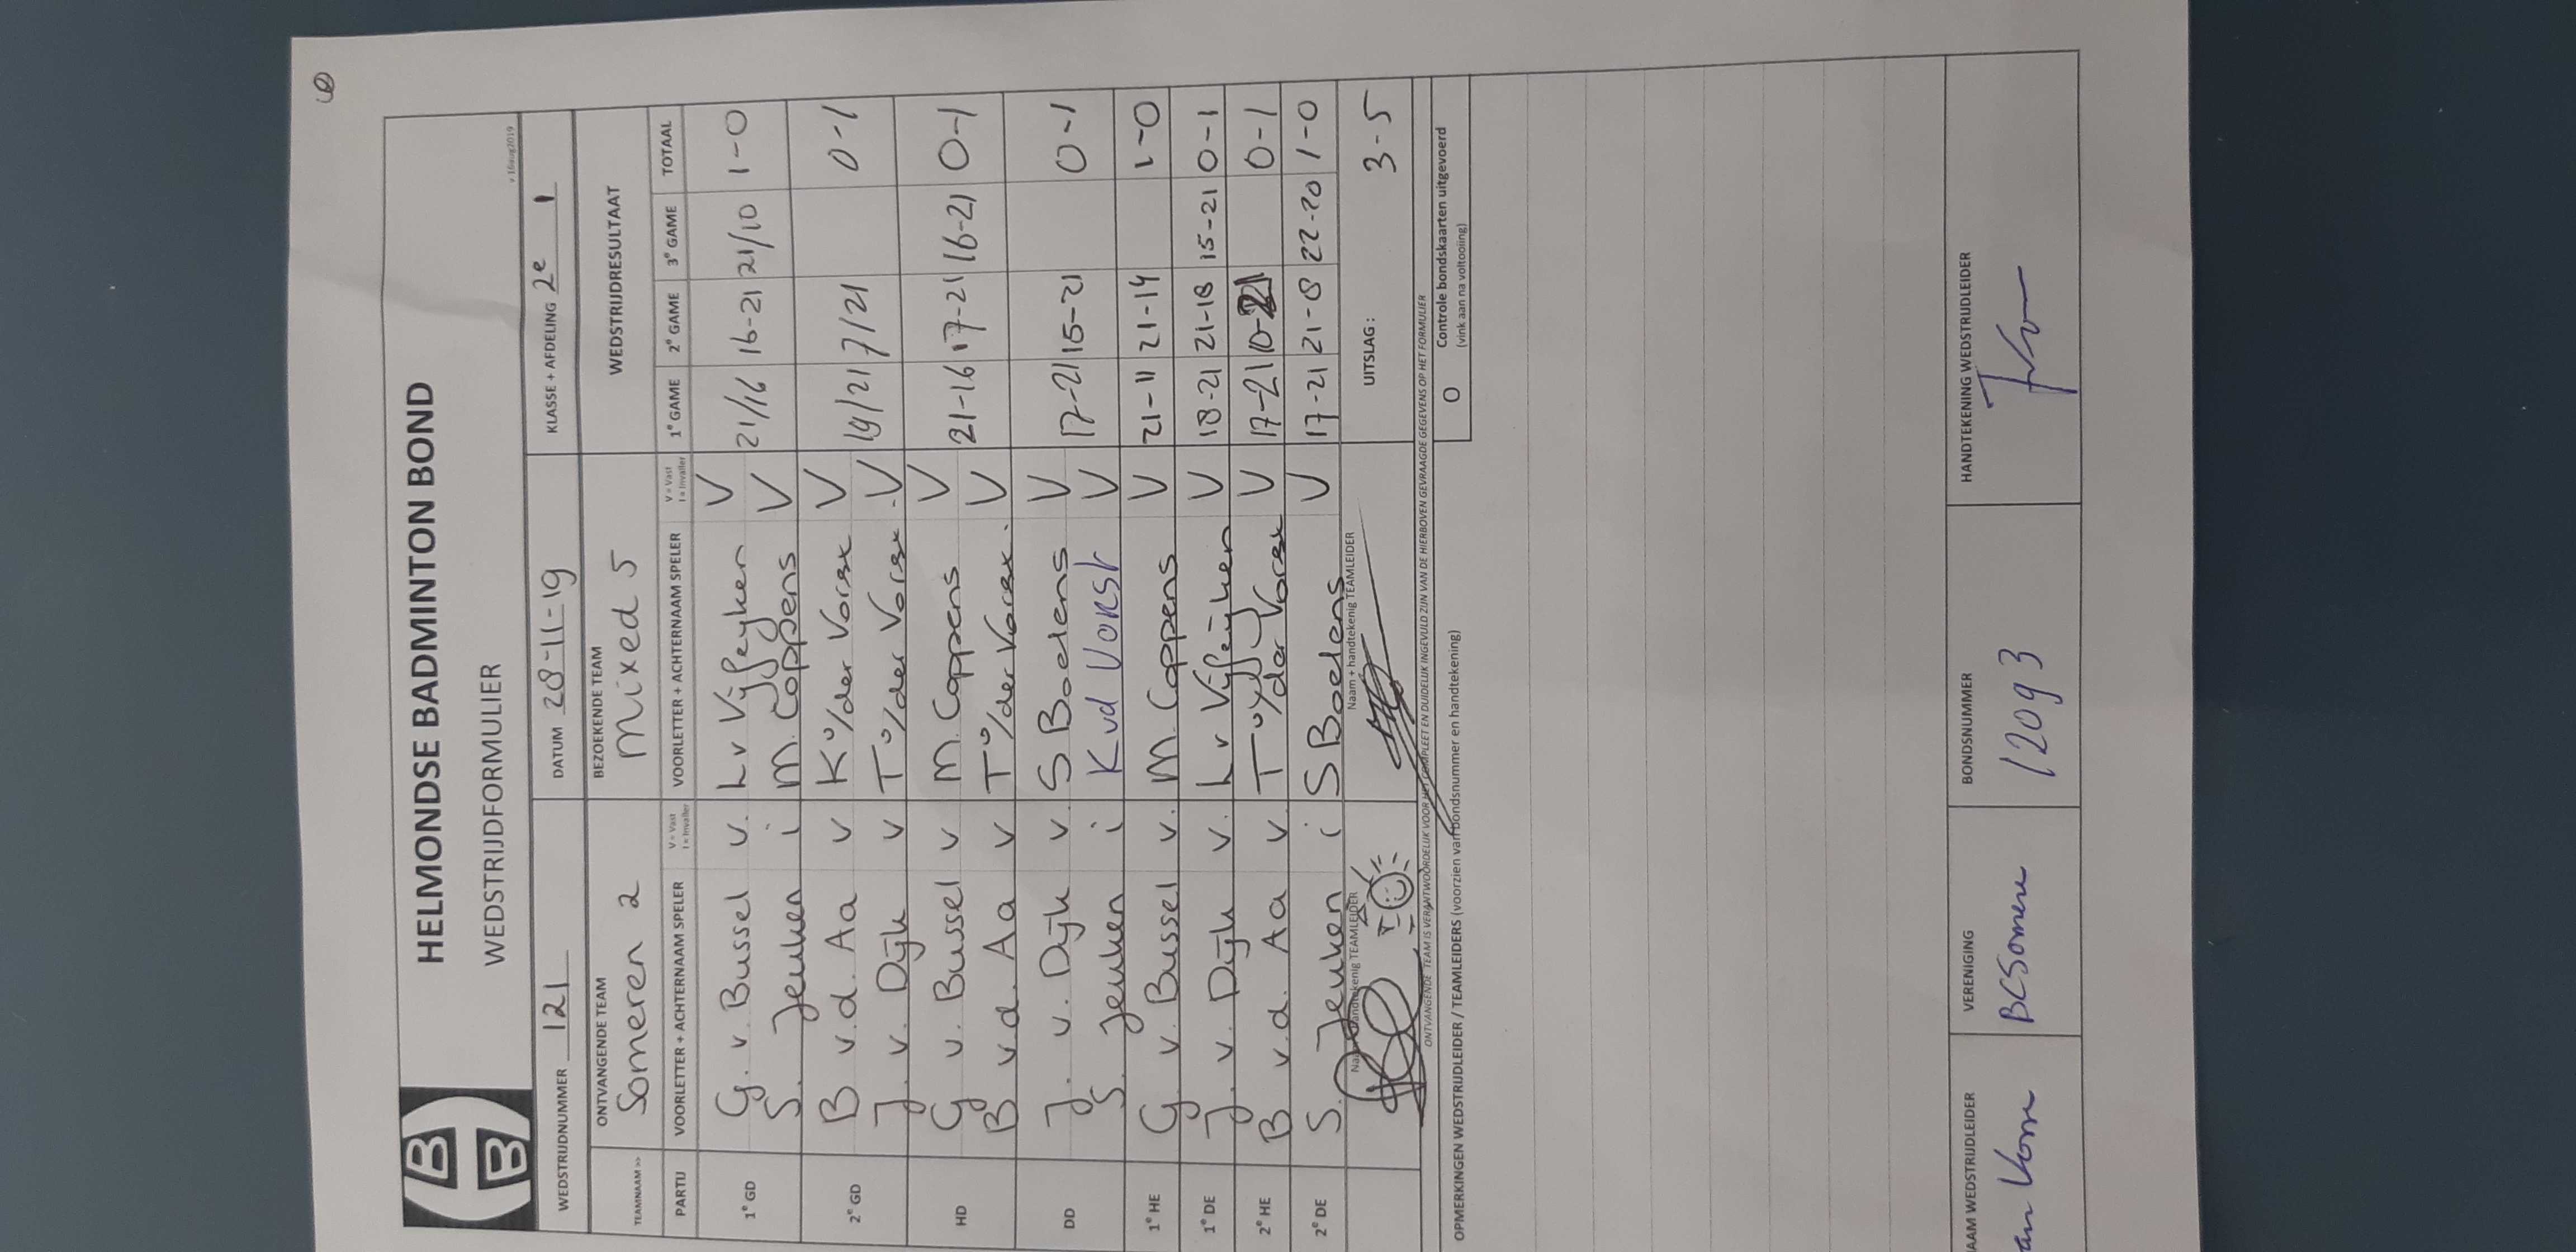 6
HELMONDSE BADMINTON BOND
WEDSTRIJDFORMULIER
v.16aug2019
BB
WEDSTRIJDNUMMER 121 DATUM 28-11-19 KLASSE + AFDELING 2e 1
TEAMNAAM >> ONTVANGENDE TEAM BEZOEKENDE TEAM WEDSTRIJDRESULTAAT
Someren 2 Mixed 5
PARTIJ VOORLETTER + ACHTERNAAM SPELER V = Vast I = Invaller VOORLETTER + ACHTERNAAM SPELER V = Vast I = Invaller 1e GAME 2e GAME 3e GAME TOTAAL
1e GD G. v. Bussel v. L v Vijfeyken V 21/16 16-21 21/10 1-0
S. Jeuken i M. Coppens V
2e GD B v.d. Aa v K v/der Vorst V 19/21 7/21 0-1
J. v. Dijk v T v/der Vorst. V
HD G v. Bussel v M. Coppens V 21-16 17-21 16-21 0-1
B v.d. Aa v T v/der Vorst. V
DD J. v. Dijk v. S Boelens V 17-21 15-21 0-1
S. Jeuken i K vd Vorst V
1e HE G v. Bussel v. M. Coppens V 21-11 21-14 1-0
1e DE J. v. Dijk v. L v Vijfeijken V 18-21 21-18 15-21 0-1
2e HE B v.d. Aa v. T v/der Vorst V 17-21 10-21 0-1
2e DE S. Jeuken i S Boelens V 17-21 21-8 22-20 1-0
Naam + handtekenig TEAMLEIDER Naam + handtekenig TEAMLEIDER UITSLAG : 3-5
ONTVANGENDE TEAM IS VERANTWOORDELIJK VOOR HET COMPLEET EN DUIDELIJK INGEVULD ZIJN VAN DE HIERBOVEN GEVRAAGDE GEGEVENS OP HET FORMULIER
OPMERKINGEN WEDSTRIJDLEIDER / TEAMLEIDERS (voorzien van bondsnummer en handtekening)
O Controle bondskaarten uitgevoerd
(vink aan na voltooiing)
AAM WEDSTRIJDLEIDER VERENIGING BONDSNUMMER HANDTEKENING WEDSTRIJDLEIDER
BC Someren 12093